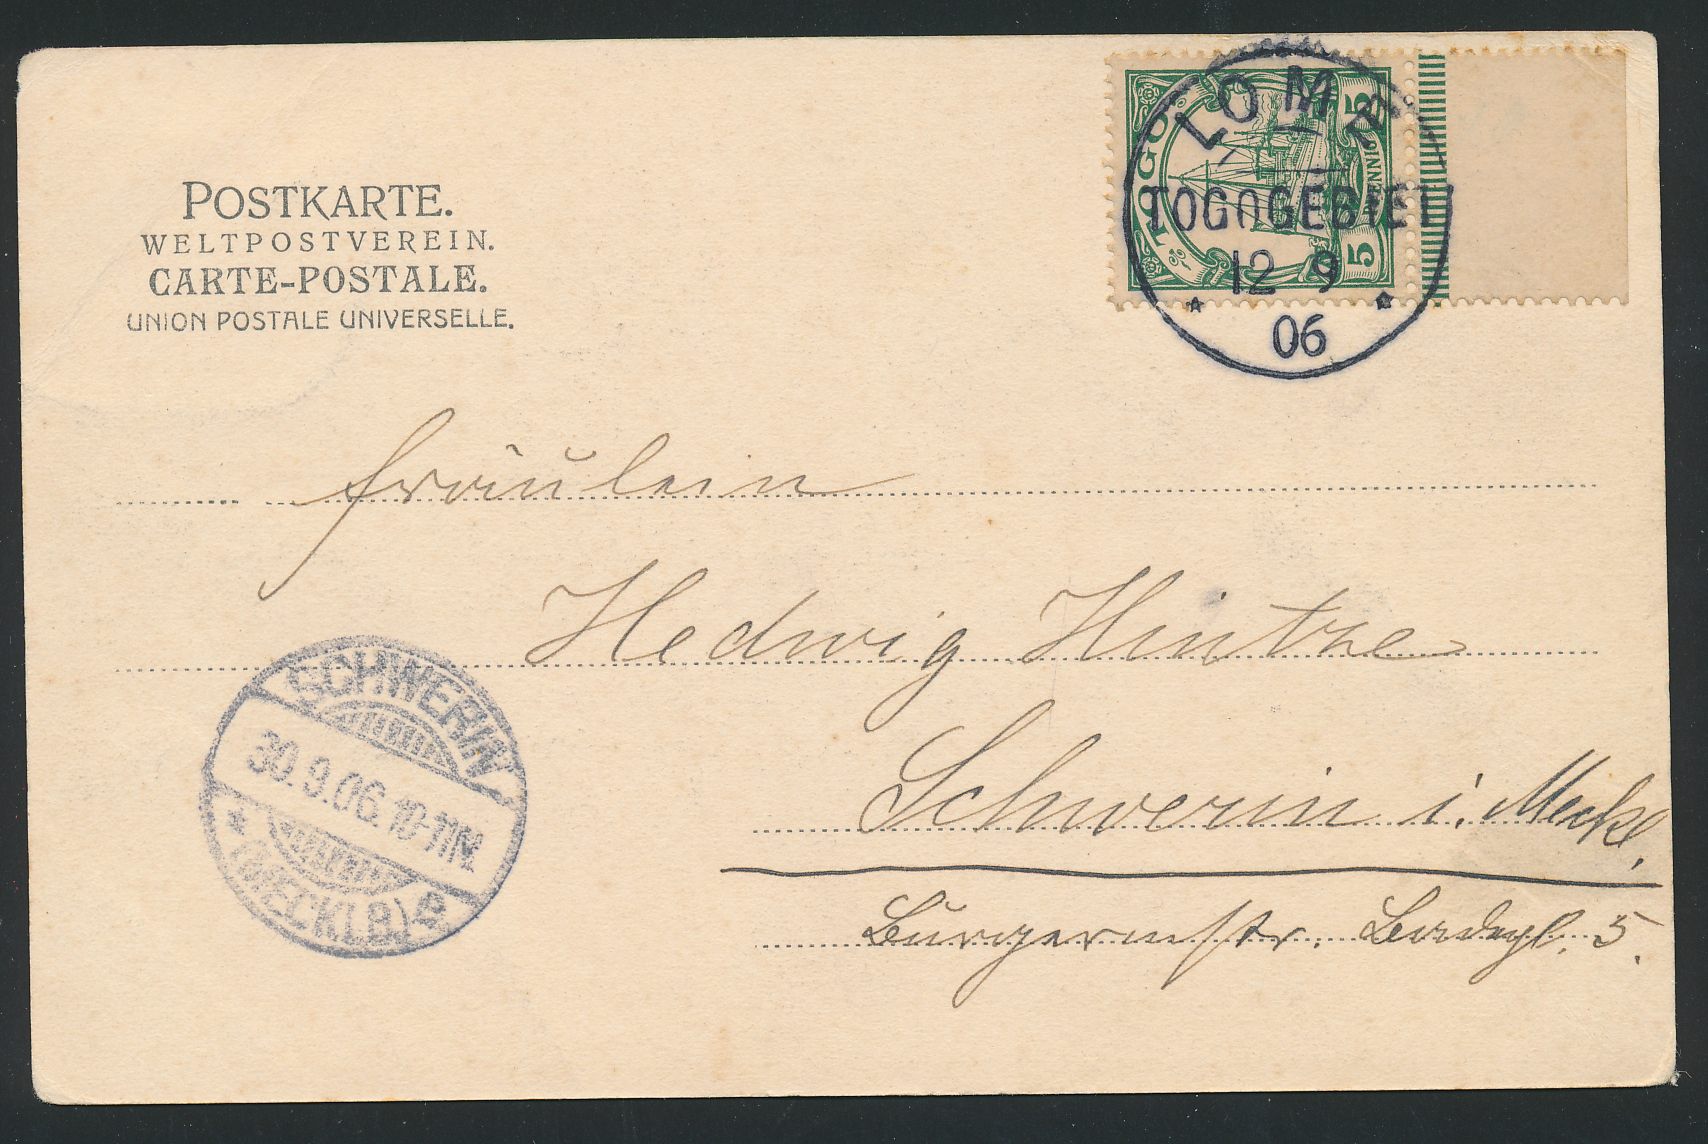 POSTKARTE.
WELTPOSTVEREIN.
CARTE-POSTALE.
UNION POSTALE UNIVERSELLE.
TOGO
5 PFENNIG 5
LOME
TOGOGEBIET
12 9
06
Fräulein
Hedwig Hintze
Schwerin i. Meckl.
Bürgermstr. 5.
SCHWERIN
30.9.06.10-11N.
(MECKLB)